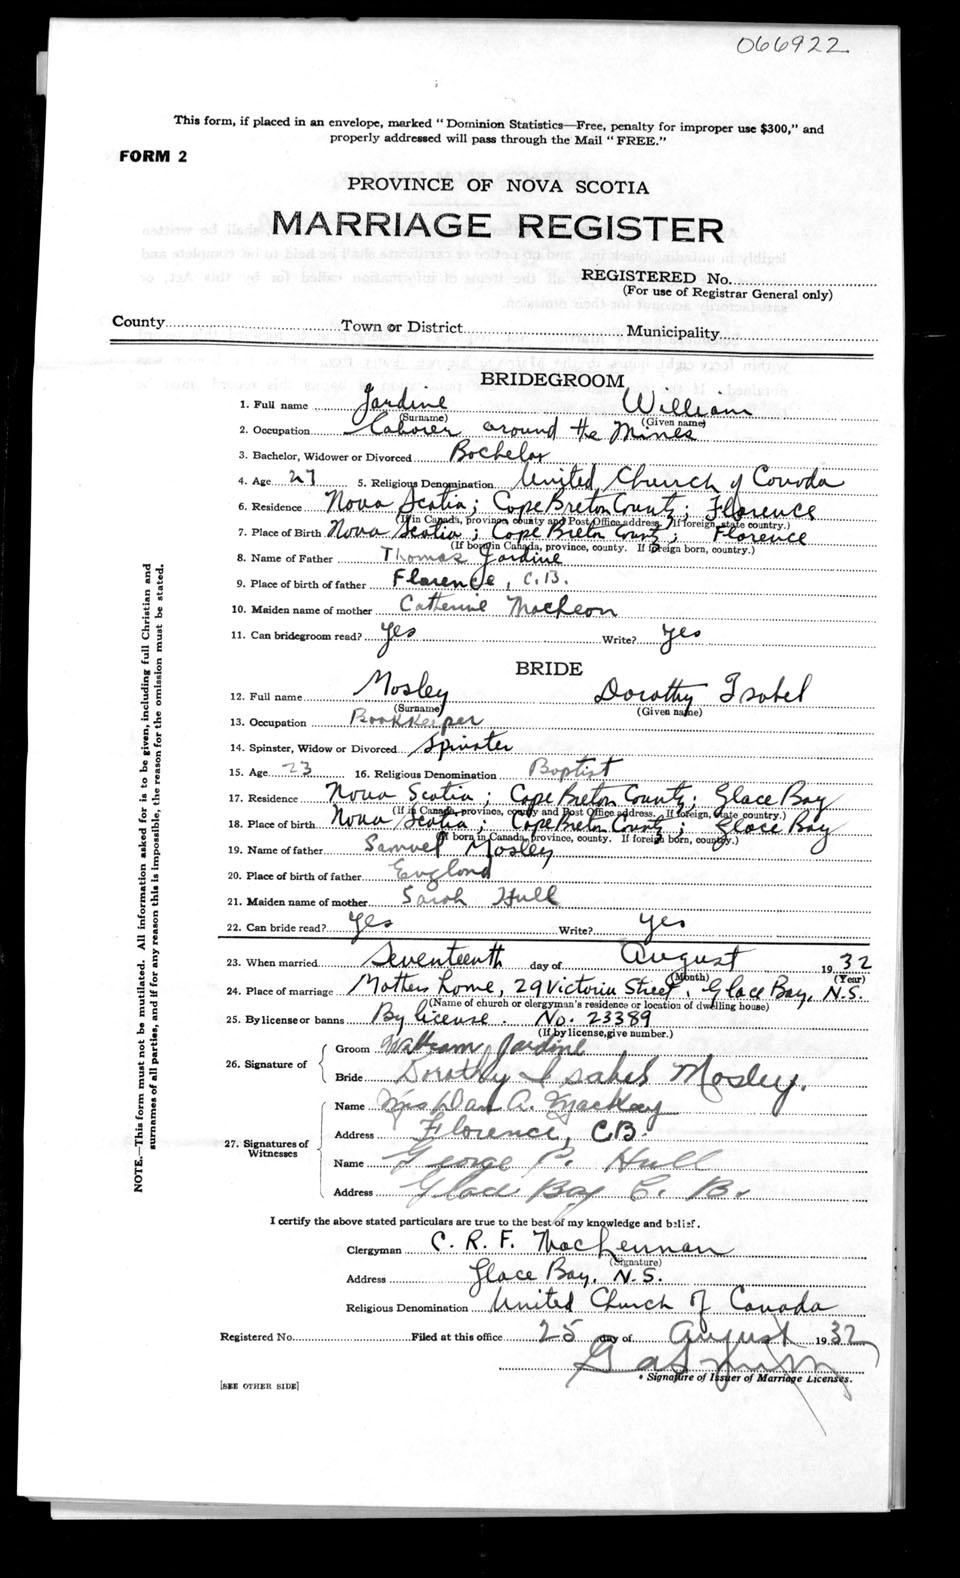 066922
This form, if placed in an envelope, marked "Dominion Statistics—Free, penalty for improper use $300," and
properly addressed will pass through the Mail "FREE."
FORM 2
PROVINCE OF NOVA SCOTIA
MARRIAGE REGISTER
REGISTERED No.
(For use of Registrar General only)
County Town or District Municipality
BRIDEGROOM
1. Full name Jardine William
(Surname) (Given name)
2. Occupation Laborer around the Mines
3. Bachelor, Widower or Divorced Bachelor
4. Age 27 5. Religious Denomination United Church of Canada
6. Residence Nova Scotia; Cape Breton County; Florence
(If in Canada, province, county and Post Office address. If foreign, state country.)
7. Place of Birth Nova Scotia; Cape Breton County; Florence
(If born in Canada, province, county. If foreign born, country.)
8. Name of Father Thomas Jardine
9. Place of birth of father Florence, C.B.
10. Maiden name of mother Catherine
11. Can bridegroom read? Yes Write? Yes
BRIDE
12. Full name Mosley Dorothy Isabel
(Surname) (Given name)
13. Occupation Bookkeeper
14. Spinster, Widow or Divorced Spinster
15. Age 23 16. Religious Denomination Baptist
17. Residence Nova Scotia; Cape Breton County; Glace Bay
(If in Canada, province, county and Post Office address. If foreign, state country.)
18. Place of birth Nova Scotia; Cape Breton County; Glace Bay
(If born in Canada, province, county. If foreign born, country.)
19. Name of father Samuel Mosley
20. Place of birth of father England
21. Maiden name of mother Sarah Hull
22. Can bride read? Yes Write? Yes
23. When married Seventeenth day of August 1932
(Month) (Year)
24. Place of marriage Mothers home, 29 Victoria Street, Glace Bay, N.S.
(Name of church or clergyman's residence or location of dwelling house)
25. By license or banns By license. No. 23389
(If by license, give number.)
26. Signature of
Groom William Jardine
Bride Dorothy Isabel Mosley.
27. Signatures of Witnesses
Name Mrs Dan A. MacKay
Address Florence, C.B.
Name George P. Hull
Address Glace Bay C. B.
I certify the above stated particulars are true to the best of my knowledge and belief.
Clergyman C. R. F. MacLennan
(Signature)
Address Glace Bay, N.S.
Religious Denomination United Church of Canada
Registered No. Filed at this office 25 day of August 1932
Signature of Issuer of Marriage Licenses.
[SEE OTHER SIDE]
NOTE.—This form must not be mutilated. All information asked for is to be given, including full Christian and
surnames of all parties, and if for any reason this is impossible, the reason for the omission must be stated.